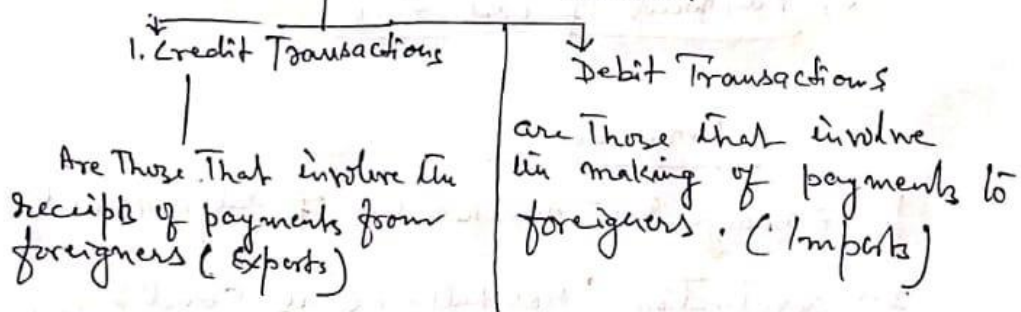 1. Credit Transactions
Are Those That involve the
receipts of payments from
foreigners (Exports)
Debit Transactions
are Those that involve
the making of payments to
foreigners. (Imports)